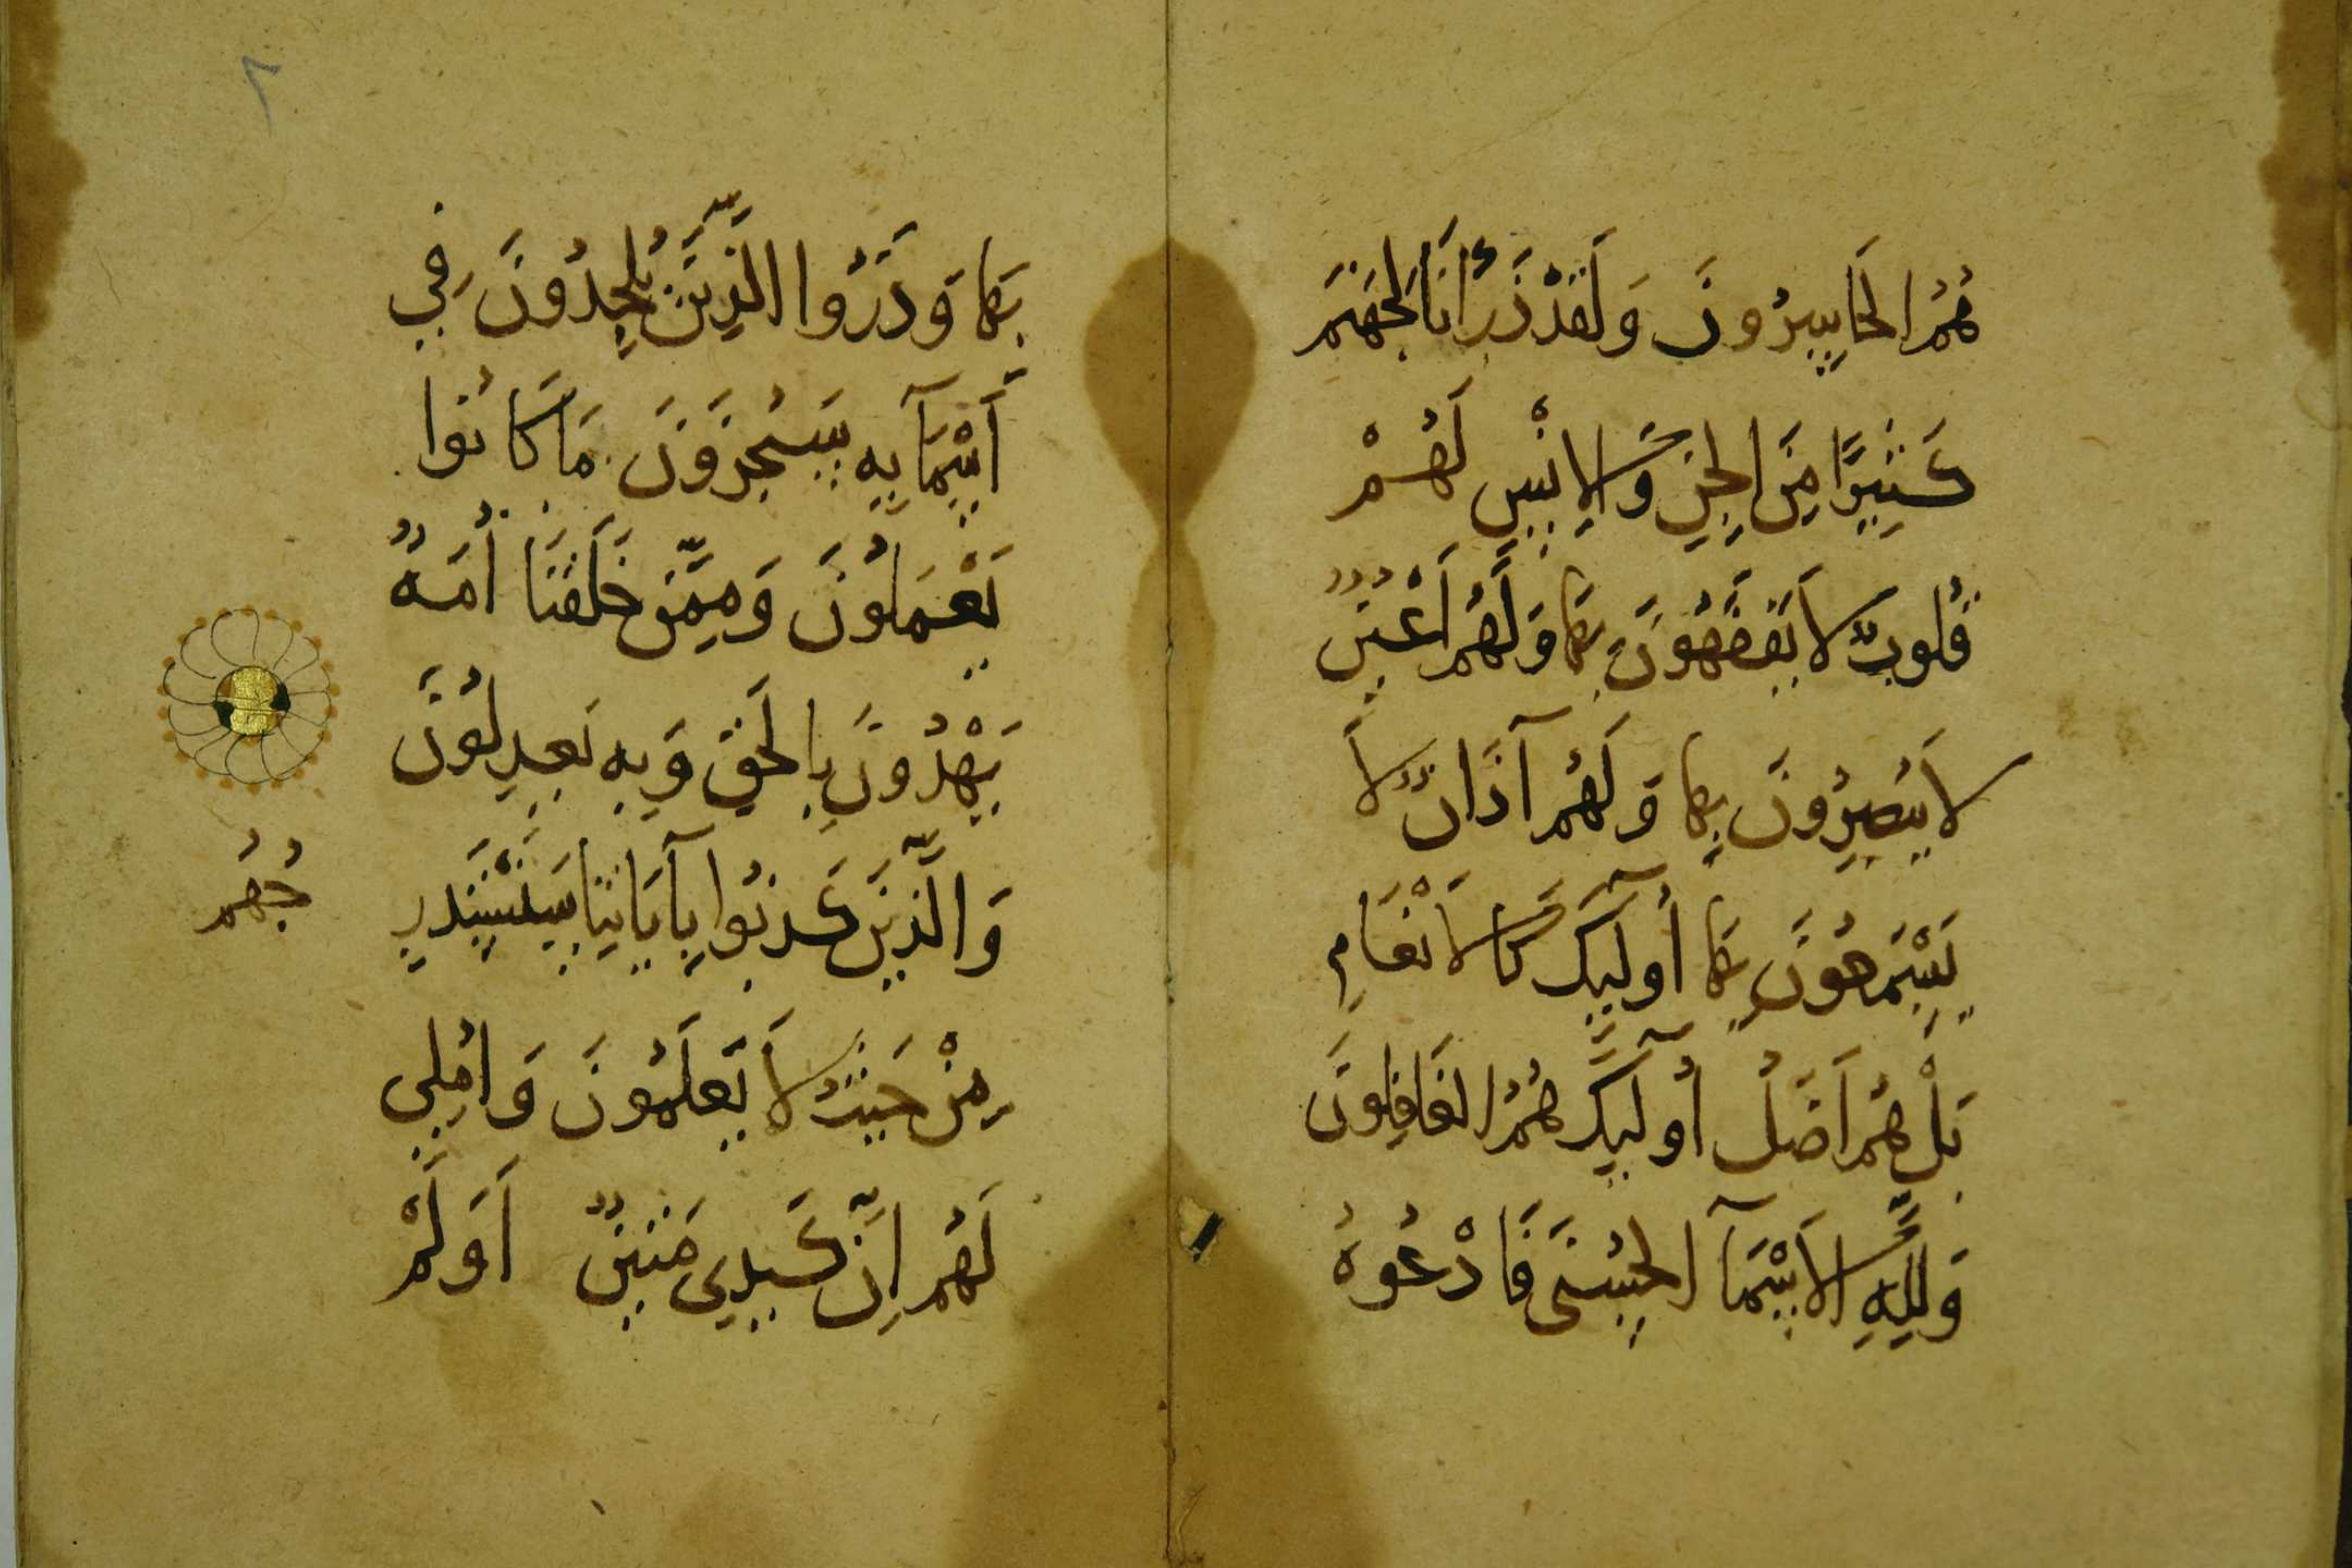 هُمُ الْخَاسِرُونَ وَلَقَدْ ذَرَأْنَا لِجَهَنَّمَ
كَثِيرًا مِنَ الْجِنِّ وَالْإِنْسِ لَهُمْ
قُلُوبٌ لَا يَفْقَهُونَ بِهَا وَلَهُمْ أَعْيُنٌ
لَا يُبْصِرُونَ بِهَا وَلَهُمْ آذَانٌ لَا
يَسْمَعُونَ بِهَا أُولَٰئِكَ كَالْأَنْعَامِ
بَلْ هُمْ أَضَلُّ أُولَٰئِكَ هُمُ الْغَافِلُونَ
وَلِلَّهِ الْأَسْمَآ الْحُسْنَى فَادْعُوهُ
بِهَا وَذَرُوا الَّذِينَ يُلْحِدُونَ فِي
أَسْمَآيِهِ سَيُجْزَوْنَ مَا كَانُوا
يَعْمَلُونَ وَمِمَّنْ خَلَقْنَا أُمَّةٌ
يَهْدُونَ بِالْحَقِّ وَبِهِ يَعْدِلُونَ
وَالَّذِينَ كَذَّبُوا بِآيَاتِنَا سَنَسْتَدْرِ
جُهُمْ
مِنْ حَيْثُ لَا يَعْلَمُونَ وَأُمْلِي
لَهُمْ إِنَّ كَيْدِي مَتِينٌ أَوَلَمْ
٢